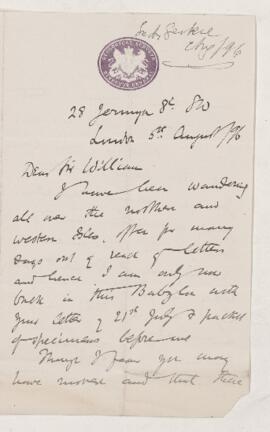 28 Jermyn St. SW
London 5th August/96
Dear Sir William
I have been wandering
all over the northern and
western Isles, often for many
days out of reach of letters
and hence I am only now
back in this Babylon with
your letter of 21st July & packet
of specimens before me
Though I fear you may
have moved and that these